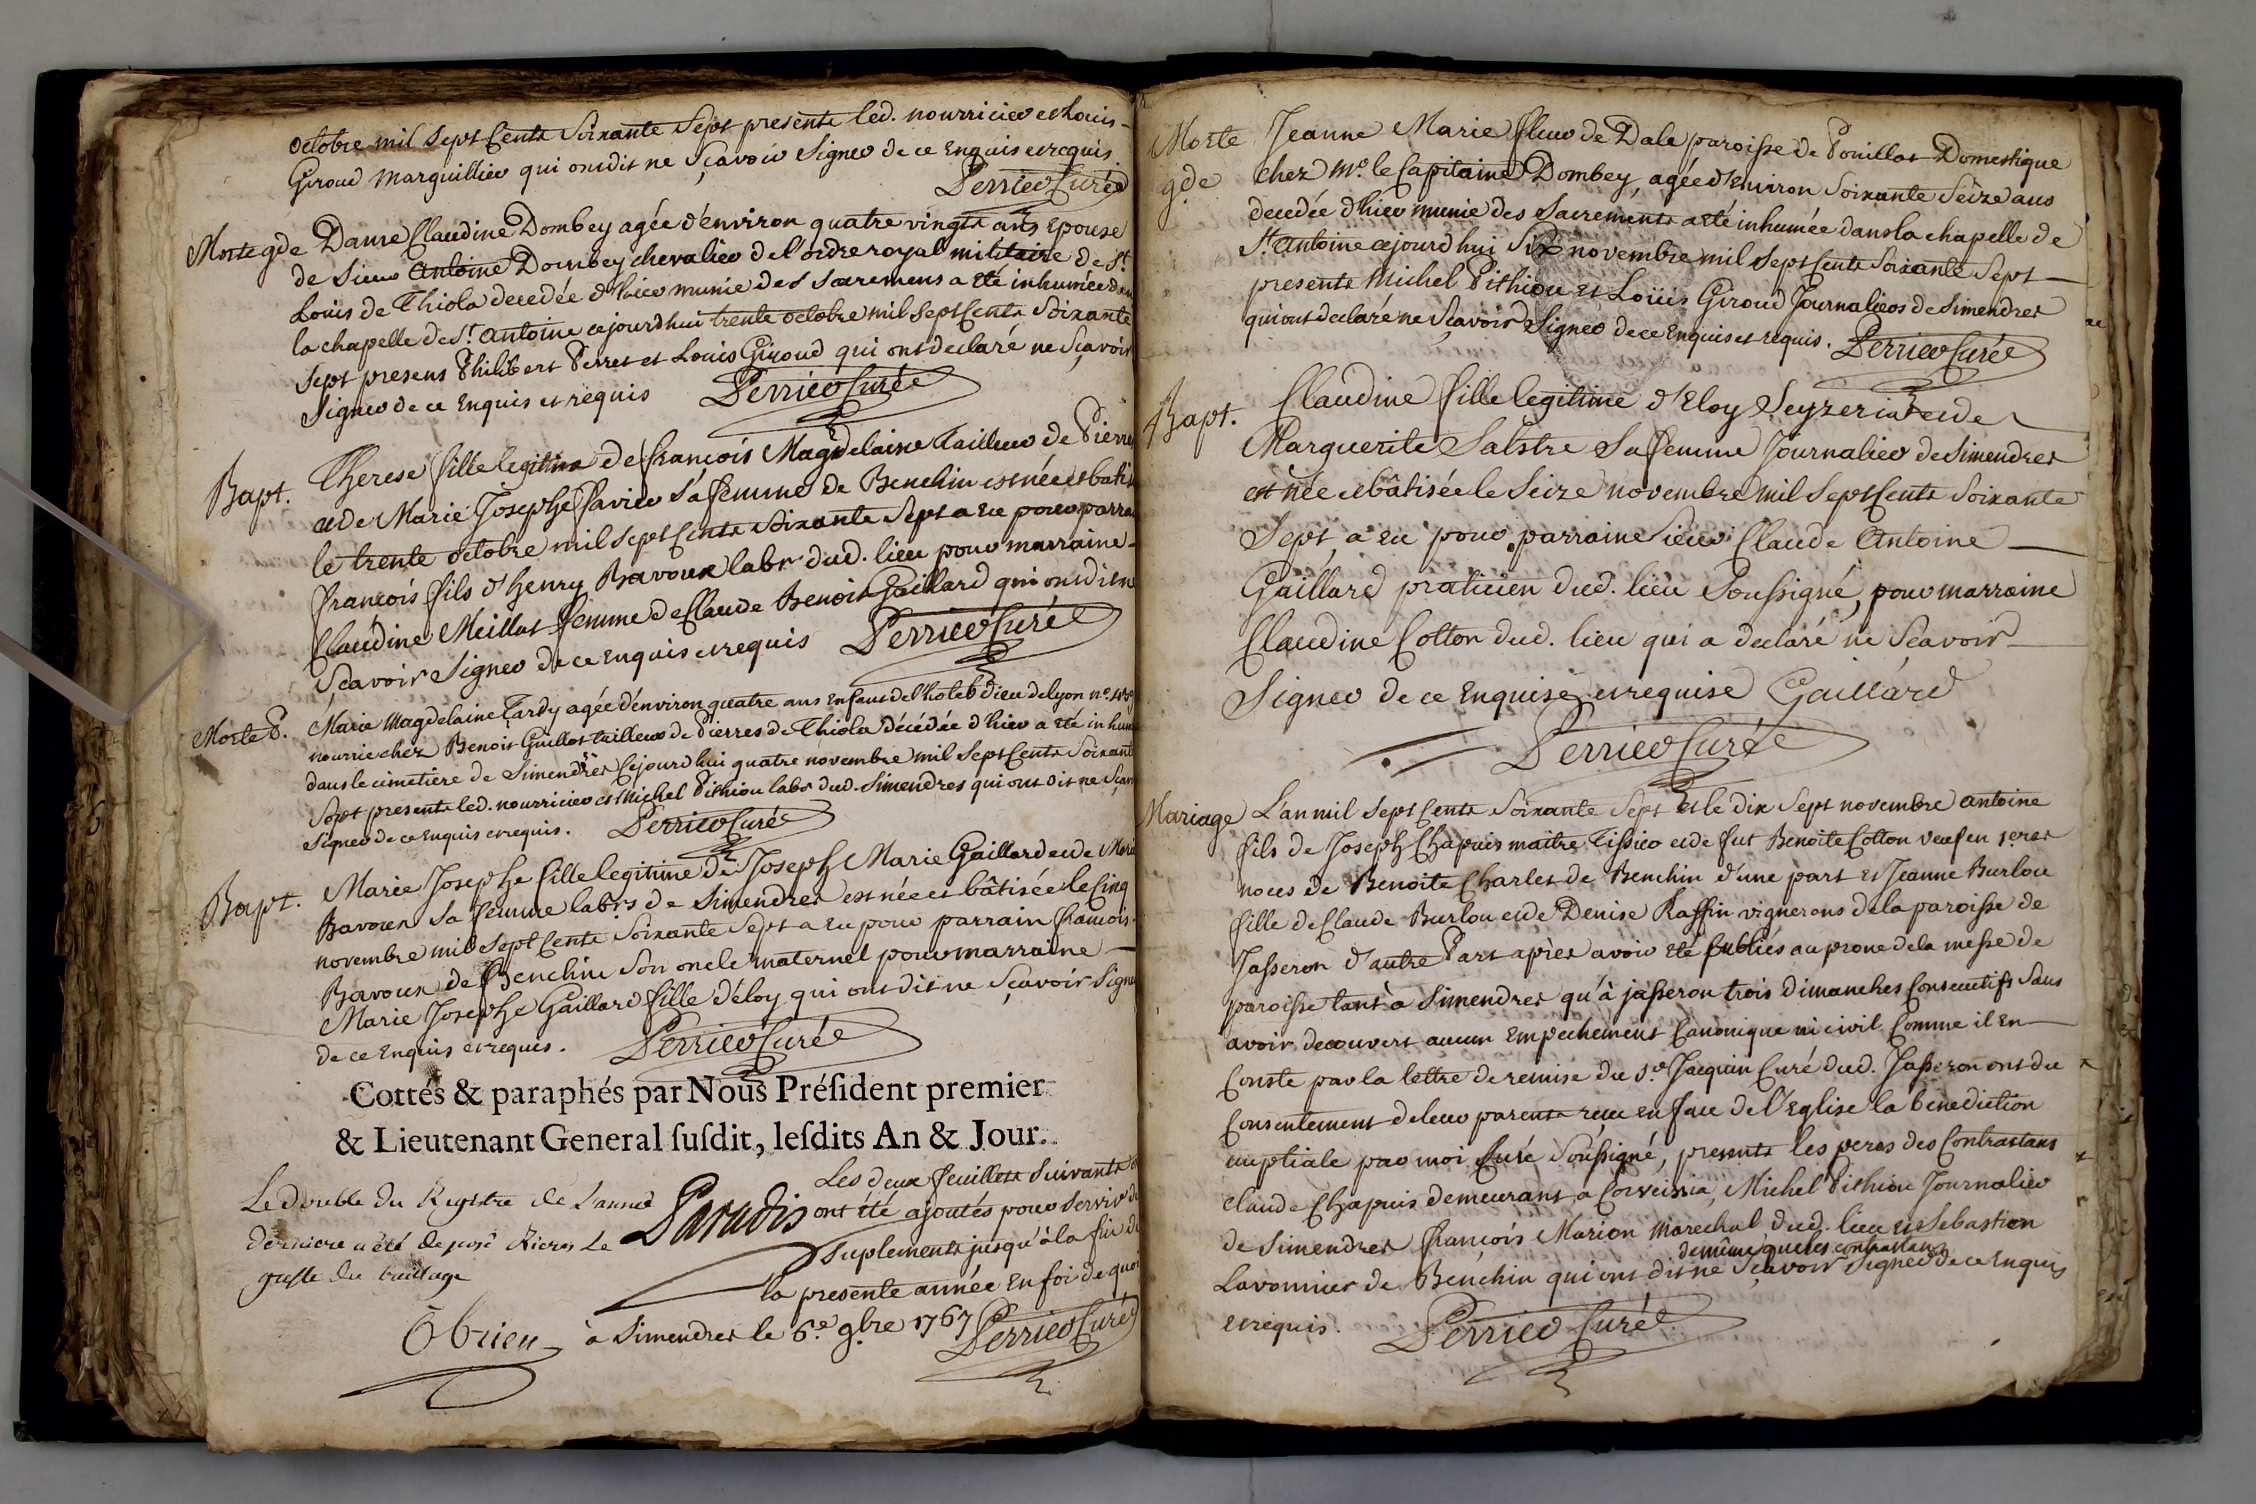 octobre mil sept Cents Soixante Sept presents led. nourricier et Louis
Giroud Marguillier qui ont dit ne Sçavoir Signer de ce Enquis et requis
Perrier Curé
Morte gde Dame Claudine Dombey agée d'environ quatre vingts ans Epouse
de Sieur Antoine Dombey chevalier de l'ordre royal militaire de St.
Louis de Thiola decedée d'hier munie des Sacremens a été inhumée dans
la chapelle de St. Antoine cejourd'hui trente octobre mil Sept Cents Soixante
Sept presens Philibert Perret et Louis Giroud qui ont declaré ne Sçavoir
Signer de ce Enquis et requis Perrier Curé
Bapt. Therese fille legitime de françois Magdelaine Tailleur de Pierre
et de Marie Josephe favier Sa femme de Benchin est née et batisée
le trente octobre mil Sept Cents Soixante Sept a eu pour parrain
françois fils d'henry Bavoux labr dud. lieu pour marraine
Claudine Meillat femme de Claude Benoit Gaillard qui ont dit ne
Sçavoir Signer de ce Enquis et requis Perrier Curé
Morte P. Marie Magdelaine Tardy agée d'environ quatre ans Enfant de l'hotel Dieu de Lyon no.
nourrie chez Benoit Guillot tailleur de Pierres de Thiola décédée d'hier a été inhumée
dans le cimetière de Simendres Cejourd'hui quatre novembre mil Sept Cents Soixante
Sept presents led. nourricier et Michel Pithiou labr dud. Simendres qui ont dit ne Sçavoir
Signer de ce Enquis et requis. Perrier Curé
Bapt. Marie Josephe fille legitime de Joseph Marie Gaillard et de Marie
Bavoux Sa femme labrs de Simendres est née et bâtisée le Cinq
novembre mil Sept Cents Soixante Sept a eu pour parrain françois
Bavoux de Benchin Son oncle maternel pour marraine
Marie Josephe Gaillard fille d'éloy qui ont dit ne Sçavoir Signer
de ce Enquis et requis. Perrier Curé
Cottés & paraphés par Nous Préſident premier
& Lieutenant General ſuſdit, leſdits An & Jour.
Les deux feuillets Suivants
Le double du Registre de L'année Paradis ont été ajoutés pour Servir de
derniere a été deposé Rieres Le Suplements jusqu'à la fin de
greffe du bailliage la presente année En foi de quoi
Obrien à Simendres le 6.e 9bre 1767 Perrier Curé
Morte Jeanne Marie fleur de Dale paroisse de Pouillat Domestique
gde chez Mr. le Capitaine Dombey, agée d'Environ Soixante Seize ans
decedée d'hier munie des Sacrements a été inhumée dans la chapelle de
St. Antoine cejourd'hui Six novembre mil Sept Cents Soixante Sept
presents Michel Pithiou et Loüis Giroud Journaliers de Simendres
qui ont declaré ne Sçavoir Signer de ce Enquis et requis. Perrier Curé
Bapt. Claudine fille legitime d'Eloy Seyzeriat et de
Marguerite Salstre Sa femme Journalier de Simendres
est née et bâtisée le Seize novembre mil Sept Cents Soixante
Sept, a eu pour parraine Sieur Claude Antoine
Gaillard praticien dud. lieu Soussigné, pour marraine
Claudine Cotton dud. lieu qui a declaré ne Sçavoir
Signer de ce Enquise et requise Gaillard
Perrier Curé
Mariage L'an mil Sept Cents Soixante Sept et le dix Sept novembre antoine
fils de Joseph Chapuis maitre Tissier et de fut Benoite Cotton veuf en 1.eres
noces de Benoite Charles de Benchin d'une part et Jeanne Burlou
fille de Claude Burlou et de Denise Raffin vignerons de la paroisse de
Jasseron d'autre Part après avoir été publiés au prone de la messe de
paroisse tant à Simendres qu'à jasseron trois Dimanches Consecutifs Sans
avoir decouvert aucun Empechement Canonique ni civil Comme il En
Conste par la lettre de remise du Sr. Jacquin Curé dud. Jasseron ont du
Consentement de leur parents recu en face de l'Eglise la benediction
nuptiale par moi Curé Soussigné, presents les peres des Contractans
Claude Chapuis demeurant a Corveissia, Michel Pithiou Journalier
de Simendres françois Marion Marechal dud. lieu et Sebastien
de même que les contractans
Lavonnier de Benchin qui ont dit ne Sçavoir Signer de ce Enquis
et requis. Perrier Curé